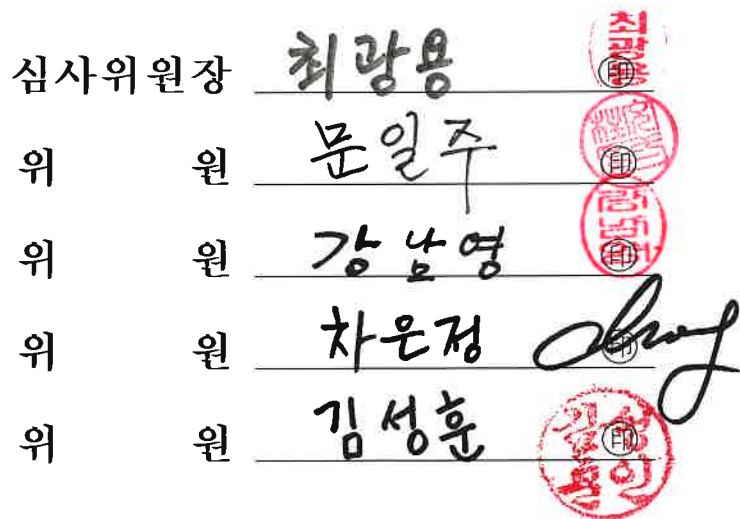 심사위원장 최광용 印
위 원 문일주 印
위 원 강남영 印
위 원 차은정 印
위 원 김성훈 印